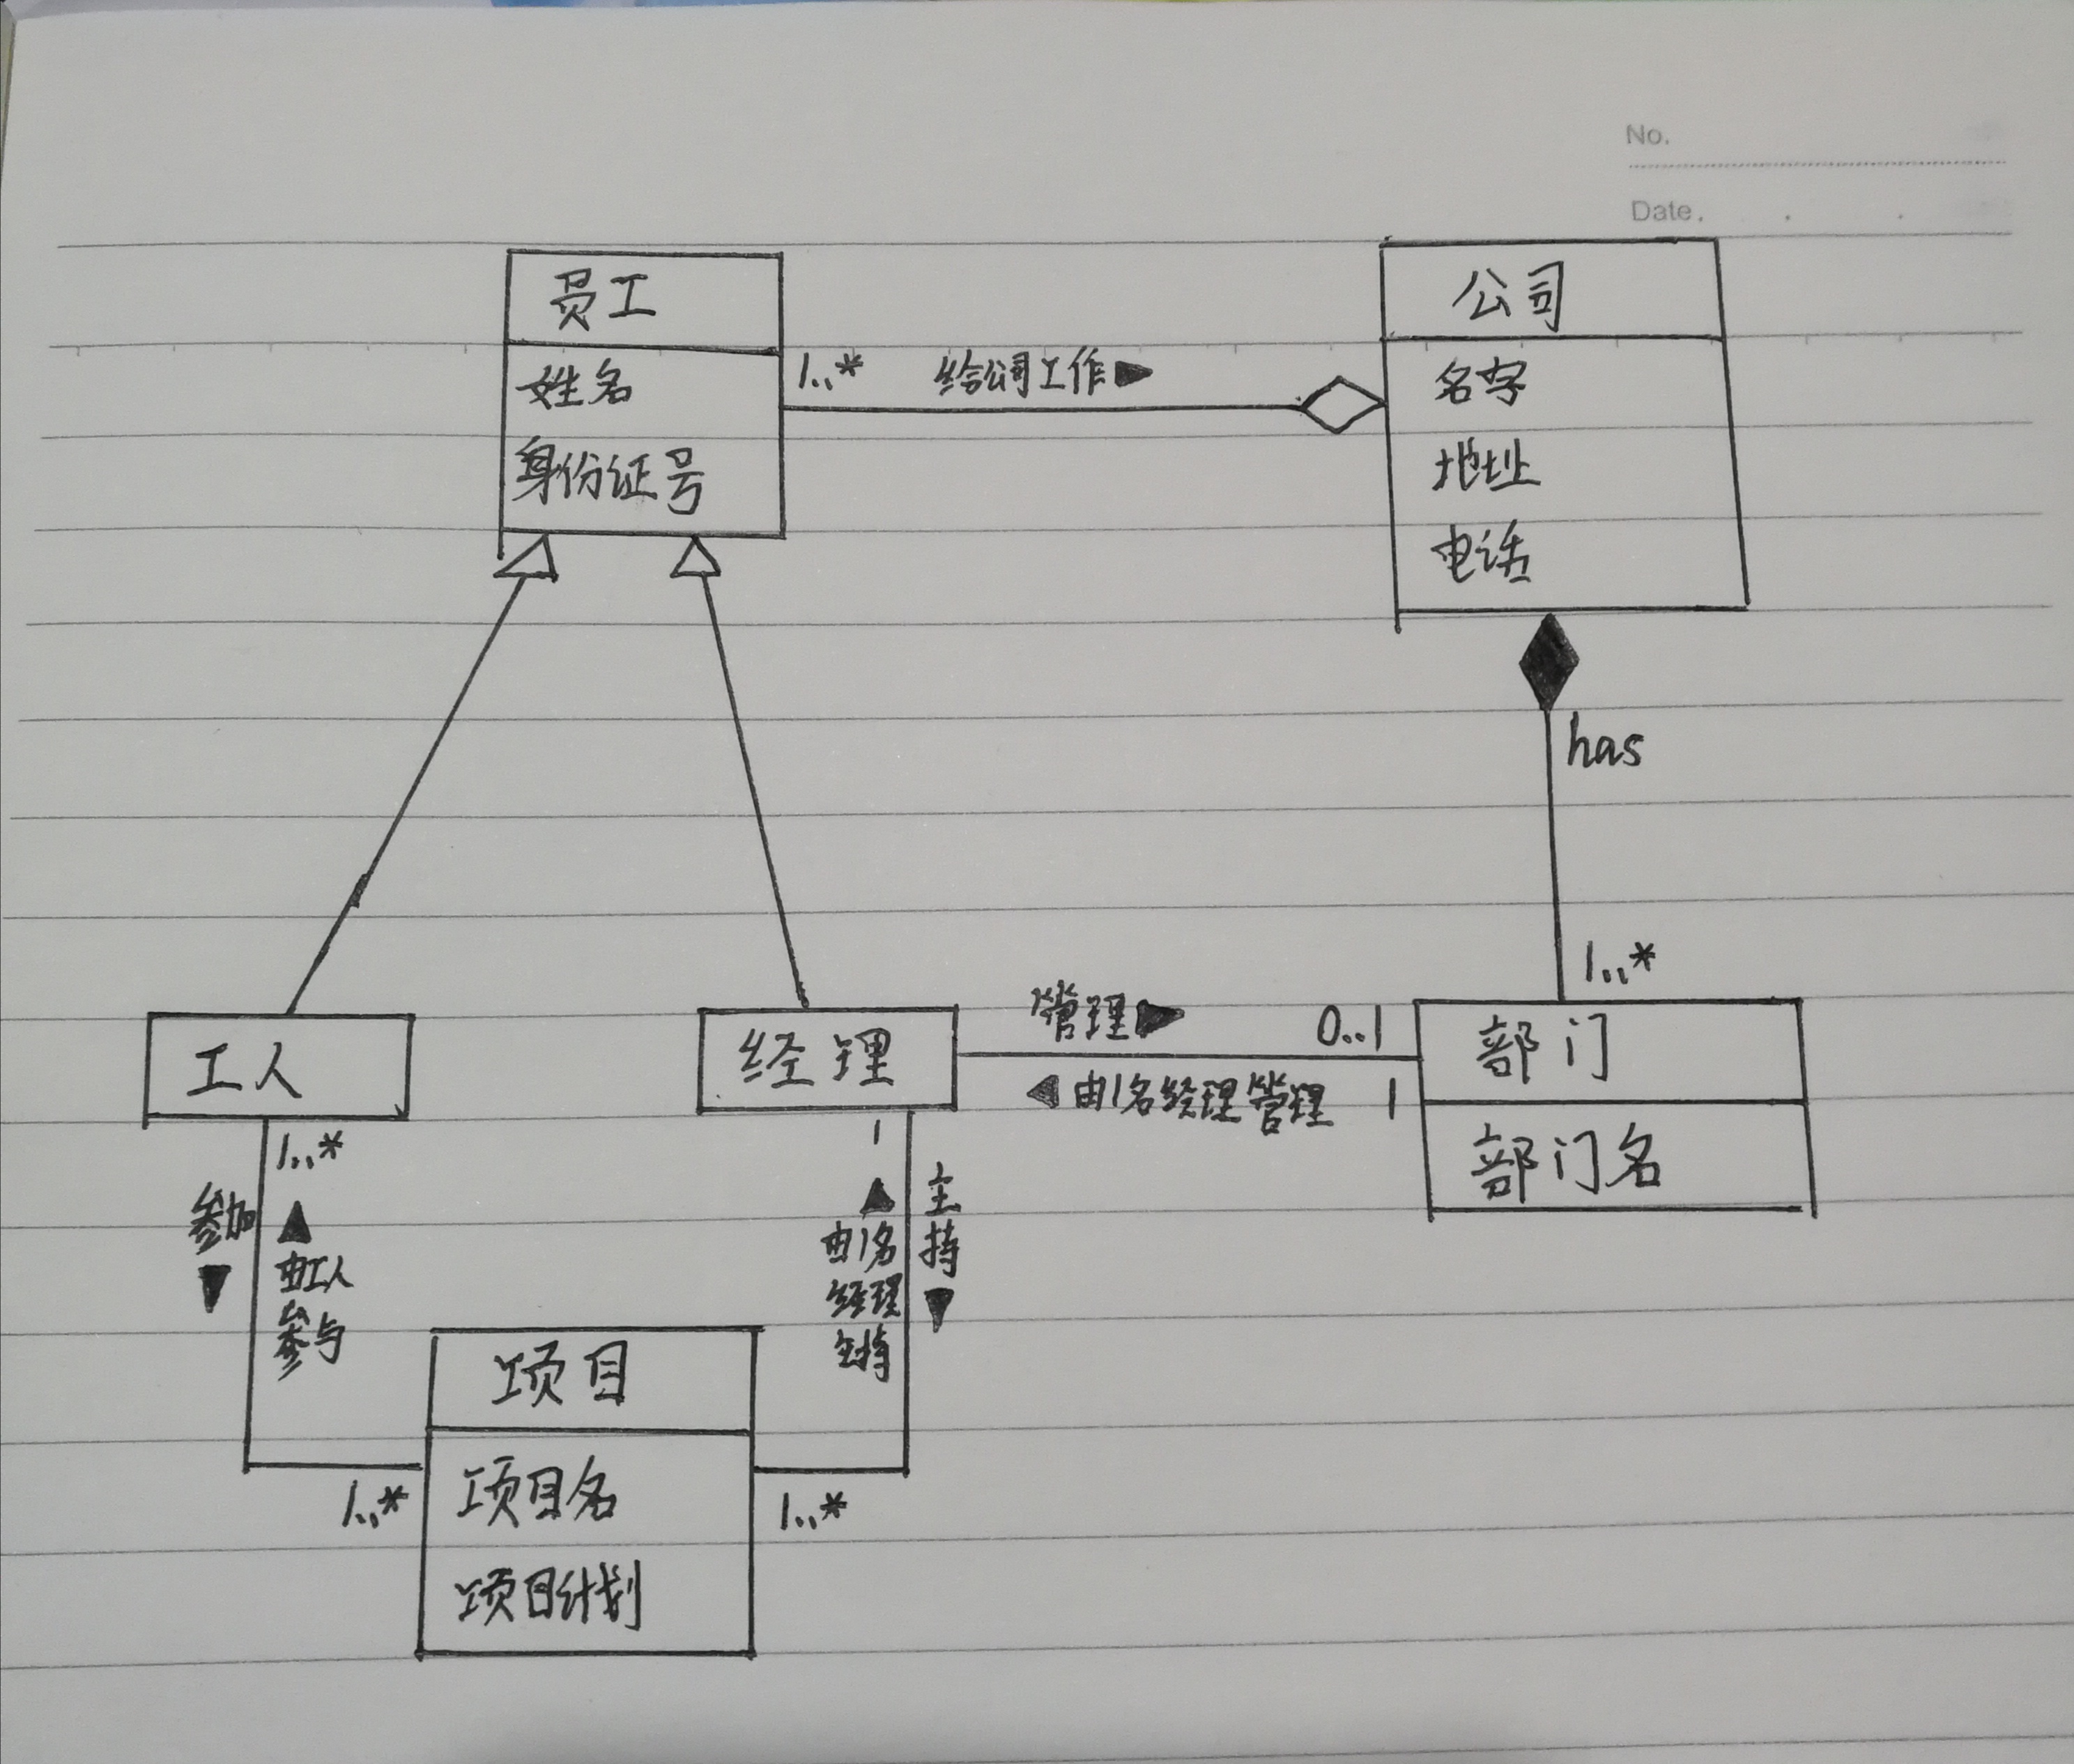 No.
Date.
员工
姓名
身份证号
1..*
给公司工作▶
公司
名字
地址
电话
has
1..*
工人
经理
管理▶
0..1
◀由1名经理管理
1
部门
部门名
1..*
参加
▼
▲
由工人
参与
1..*
1
▲
由1名
经理
主持
主
持
▼
1..*
项目
项目名
项目计划